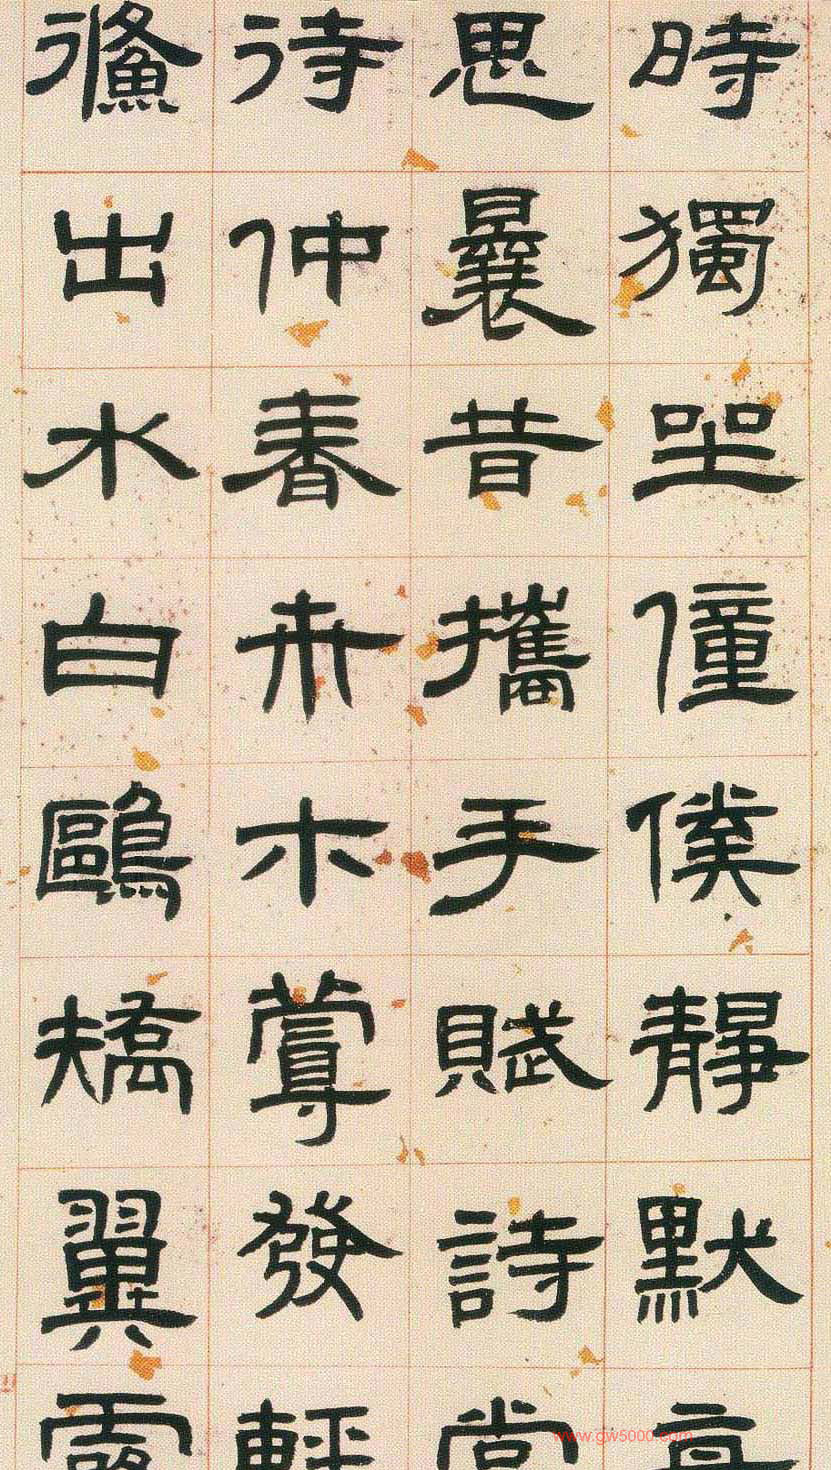 時獨坐僮僕靜默
思曩昔攜手賦詩當
待仲春卉木蔓發輕
鯈出水白鷗矯翼露
www.gw5000.com